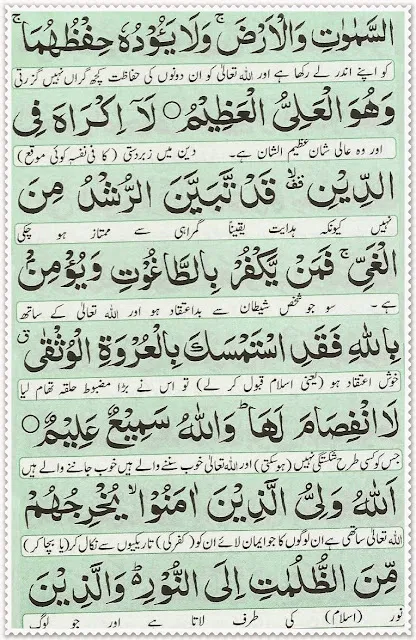 السَّمٰوٰتِ وَالْاَرْضَ ۚ وَلَا یَـُٔوْدُهٗ حِفْظُهُمَا ۚ
کو اپنے اندر لے رکھا ہے اور اللہ تعالیٰ کو ان دونوں کی حفاظت کچھ گراں نہیں گزرتی
وَهُوَ الْعَلِیُّ الْعَظِیْمُ ○ لَاۤ اِكْرَاهَ فِی
اور وہ عالی شان عظیم الشان ہے۔ دین میں زبردستی (کا فی نفسہٖ کوئی موقع)
الدِّیْنِ ۙ قَدْ تَّبَیَّنَ الرُّشْدُ مِنَ
نہیں کیونکہ ہدایت یقیناً گمراہی سے ممتاز ہو چکی
الْغَیِّ ۚ فَمَنْ یَّكْفُرْ بِالطَّاغُوْتِ وَیُؤْمِنْۢ
ہے۔ سو جو شخص شیطان سے بداعتقاد ہو اور اللہ تعالیٰ کے ساتھ
بِاللّٰهِ فَقَدِ اسْتَمْسَكَ بِالْعُرْوَةِ الْوُثْقٰی ۗ
خوش اعتقاد ہو (یعنی اسلام قبول کر لے) تو اس نے بڑا مضبوط حلقہ تھام لیا
لَا انْفِصَامَ لَهَا ؕ وَاللّٰهُ سَمِیْعٌ عَلِیْمٌ ○
جس کو کسی طرح شکستگی نہیں (ہو سکتی) اور اللہ تعالیٰ خوب سننے والے ہیں خوب جاننے والے ہیں
اَللّٰهُ وَلِیُّ الَّذِیْنَ اٰمَنُوْا ۙ یُخْرِجُهُمْ
اللہ تعالیٰ ساتھی ہے ان لوگوں کا جو ایمان لائے ان کو (کفر کی) تاریکیوں سے نکال کر (یا بچا کر)
مِّنَ الظُّلُمٰتِ اِلَی النُّوْرِ ؕ۬ وَالَّذِیْنَ
نور (اسلام) کی طرف لاتا ہے اور جو لوگ